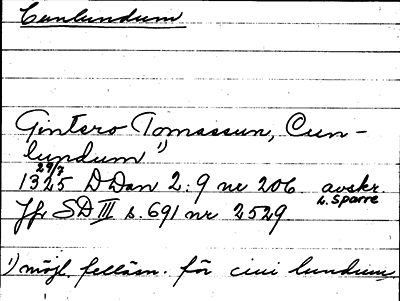 Cunlundum
Gintero Tomassun, Cun-
lundum 1)
29/7
1325 DDan 2:9 nr 206 avskr.
L. Sparre
Jfr SD III s. 691 nr 2529.
1) möjl. felläsn. för ciui lundum